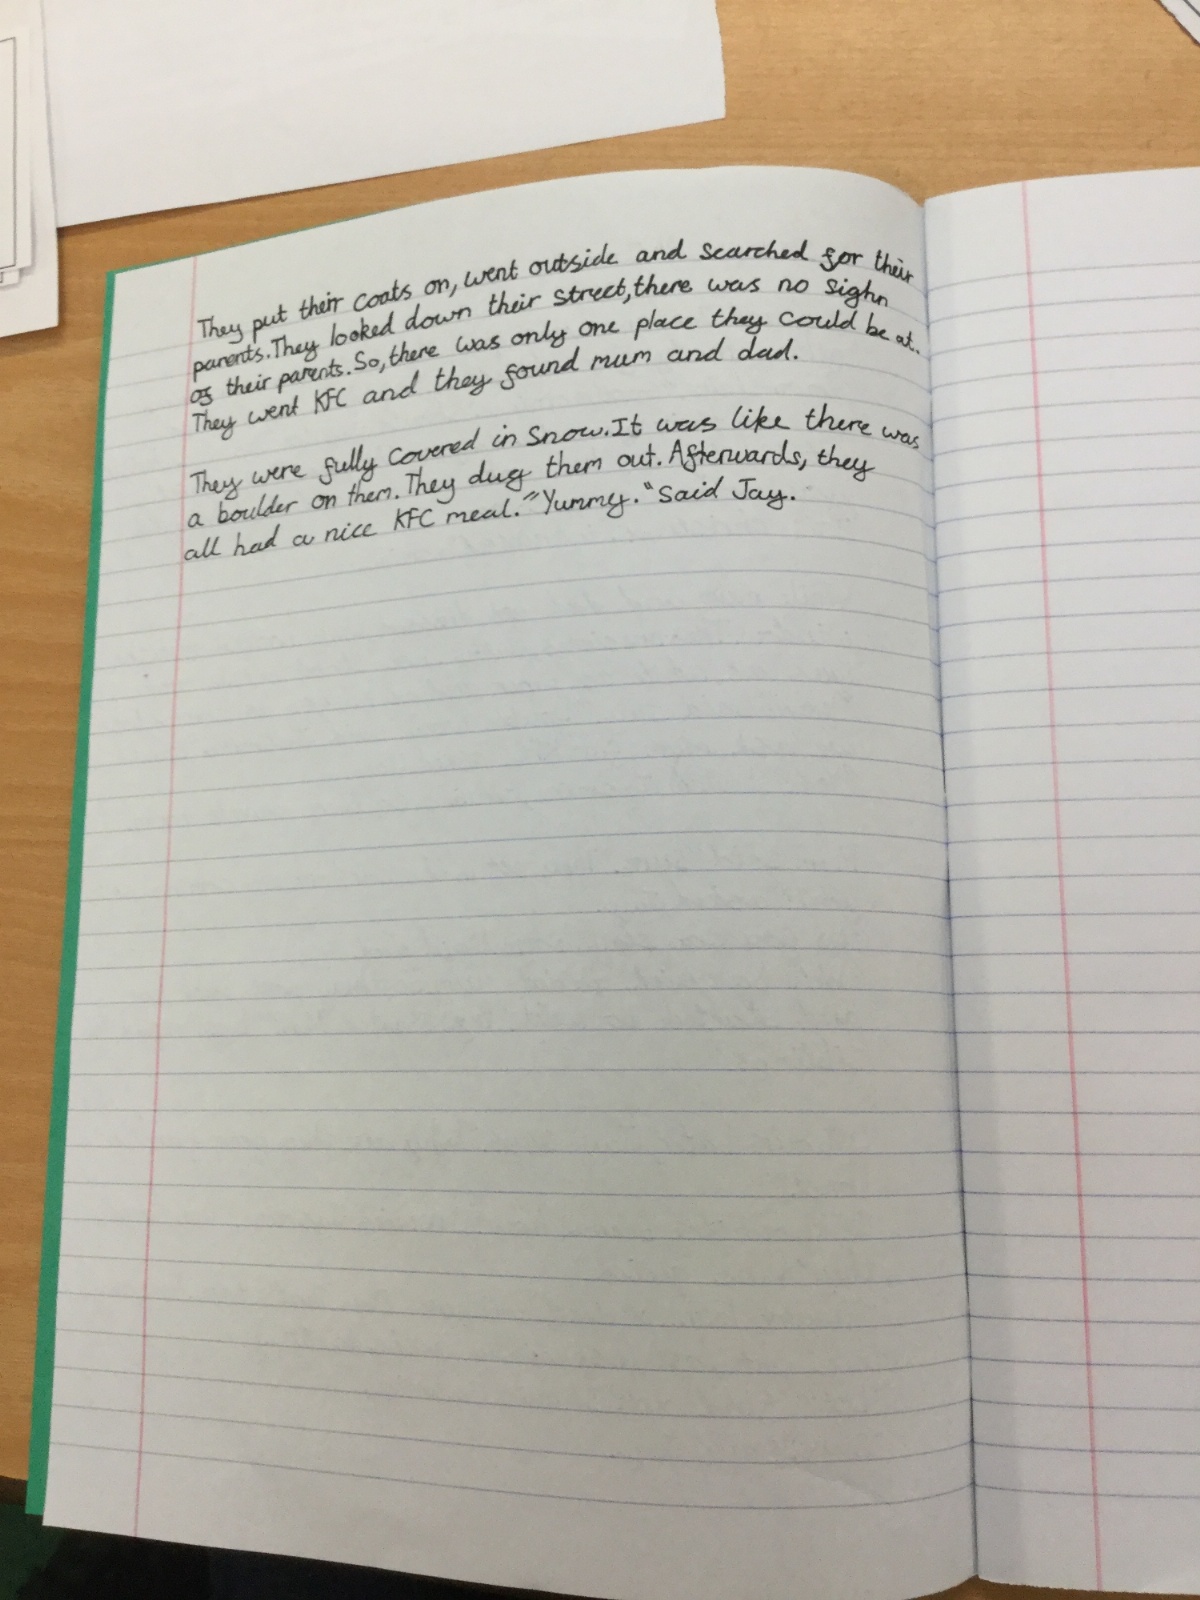 They put their coats on, went outside and searched for their
parents. They looked down their street, there was no sighn
of their parents. So, there was only one place they could be at.
They went KFC and they found mum and dad.
They were fully covered in snow. It was like there was
a boulder on them. They dug them out. Afterwards, they
all had a nice KFC meal. "Yummy." said Jay.